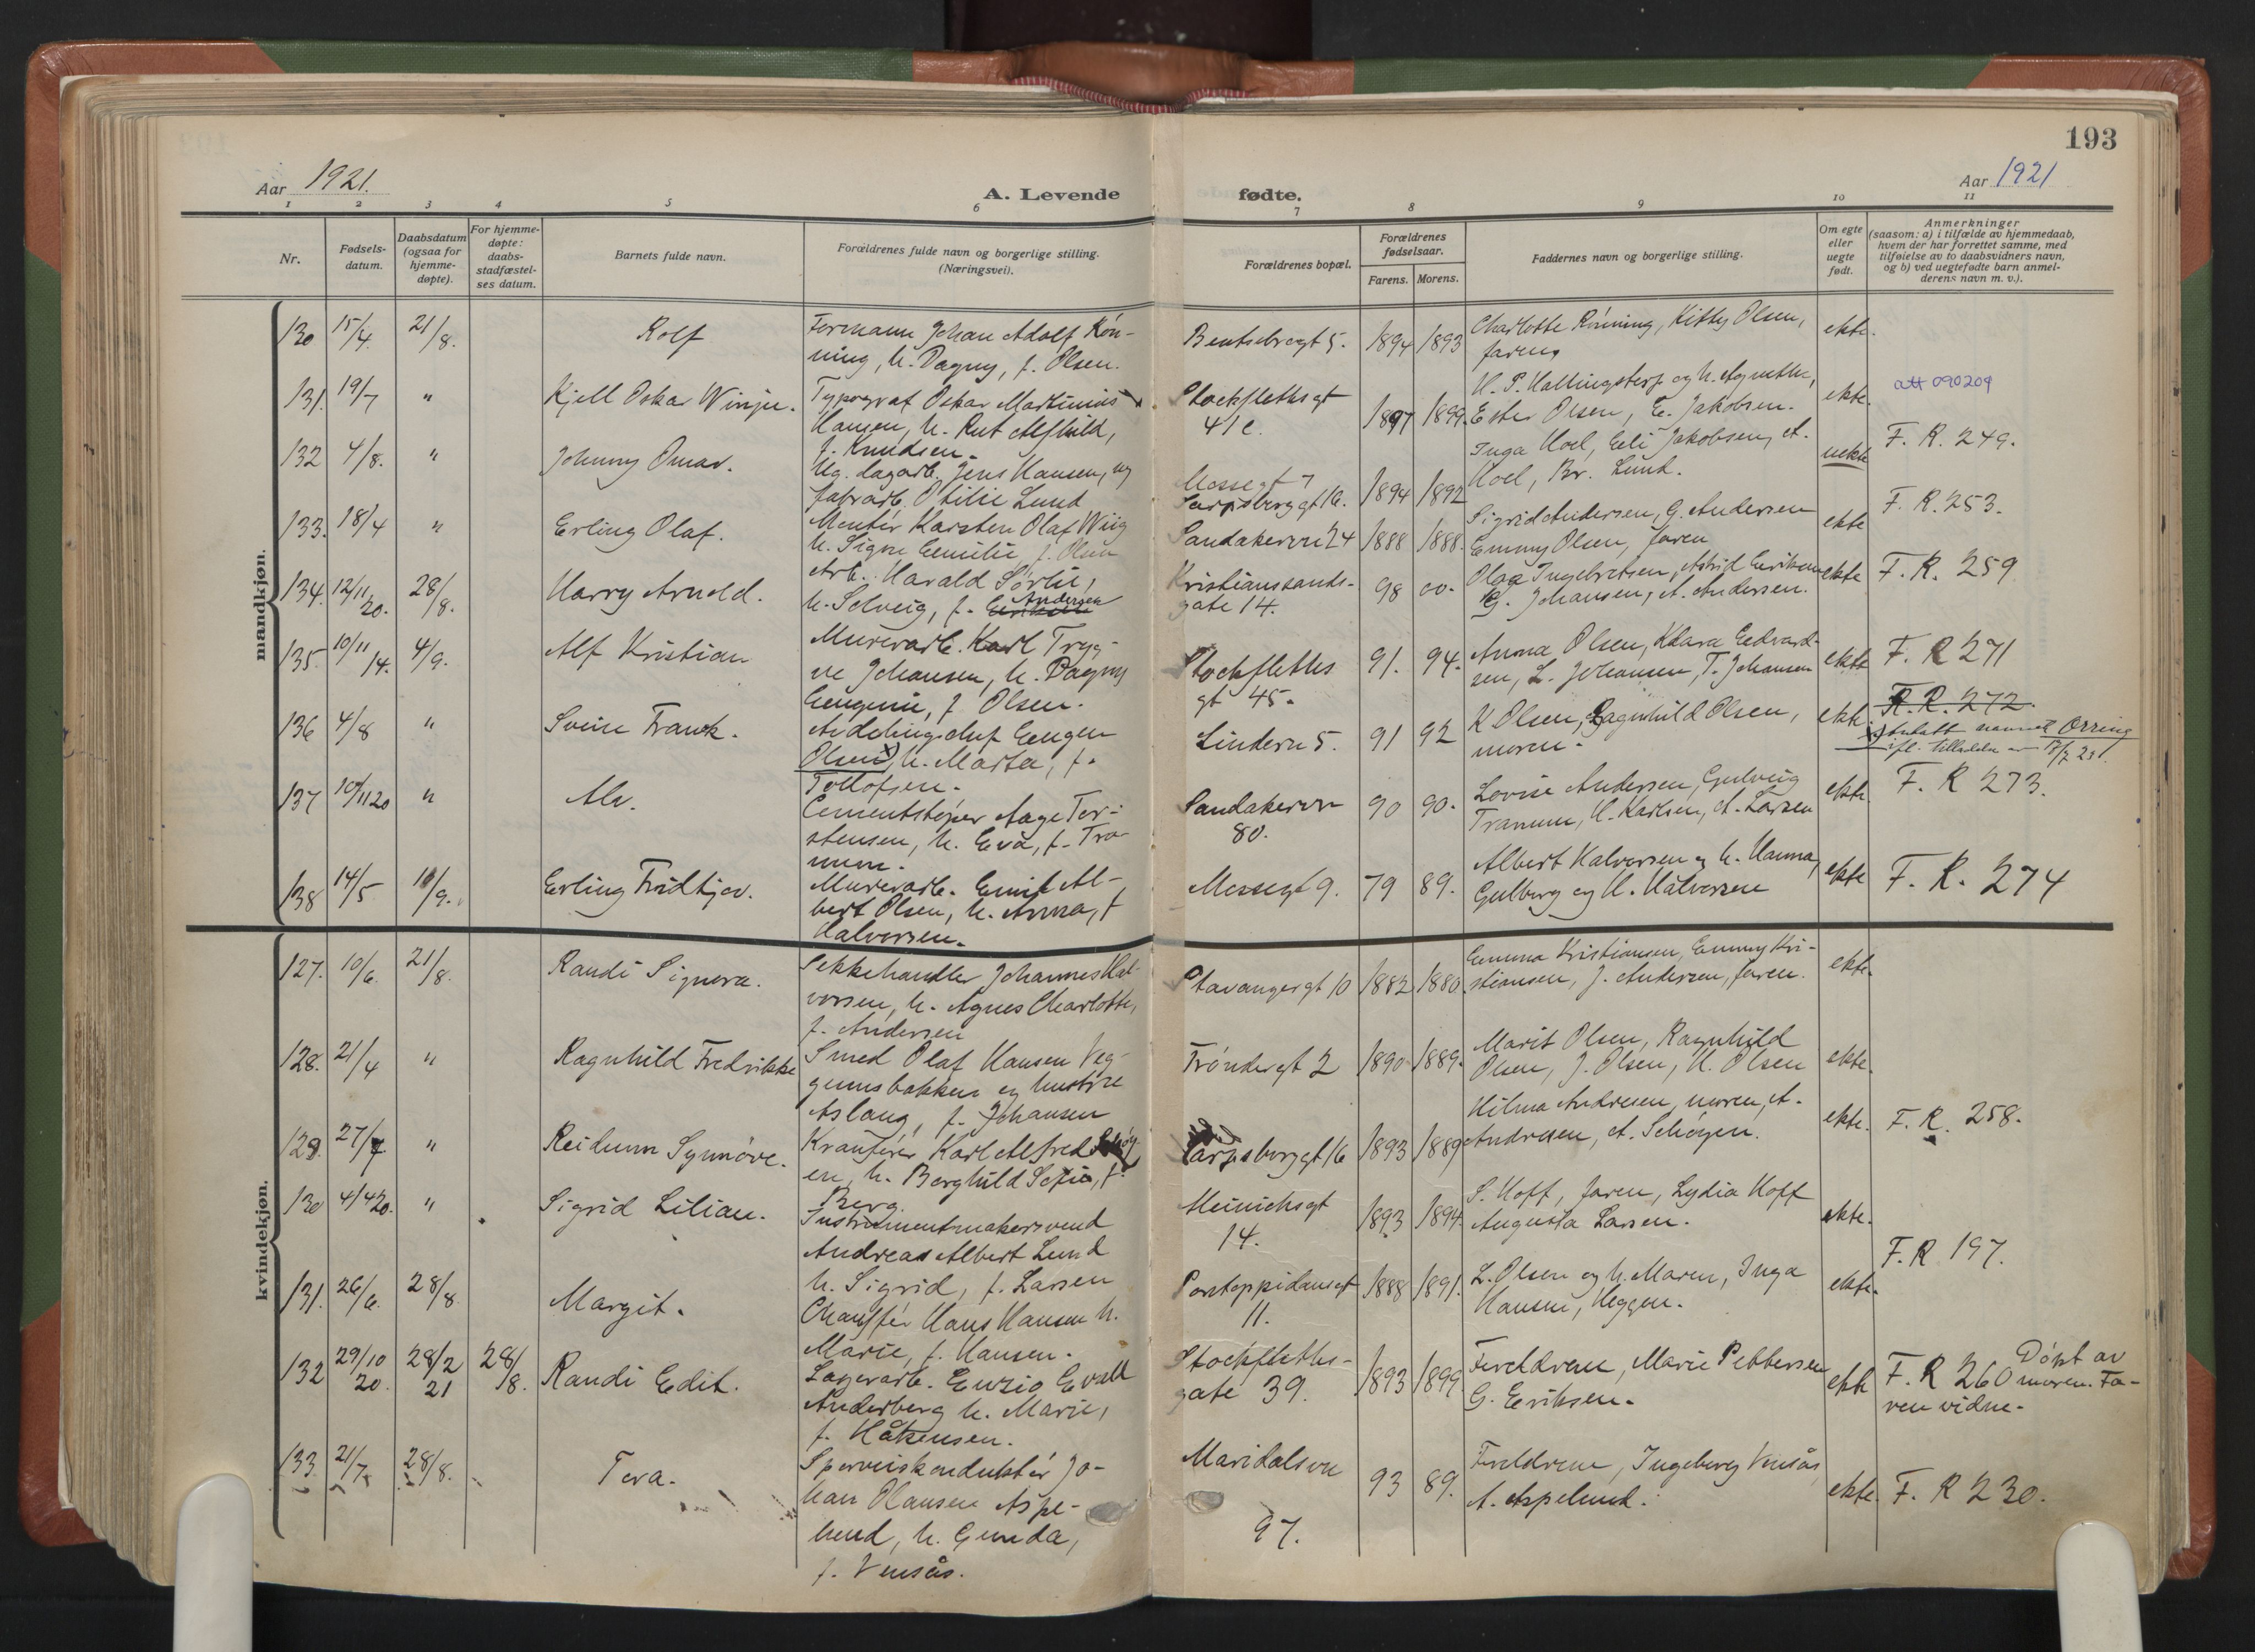 193
Aar 1921.
A. Levende fødte.
Aar 1921
1 2 3 4 5 6 7 8 9 10 11
Nr.
Fødsels-
datum.
Daabsdatum
(ogsaa for
hjemme-
døpte).
For hjemme-
døpte:
daabs-
stadfæstel-
ses datum.
Barnets fulde navn.
Forældrenes fulde navn og borgerlige stilling.
(Næringsvei).
Forældrenes bopæl.
Forældrenes
fødselsaar.
Farens. Morens.
Faddernes navn og borgerlige stilling.
Om egte
eller
uegte
født.
Anmerkninger
(saasom: a) i tilfælde av hjemmedaab,
hvem der har forrettet samme, med
tilføielse av to daabsvidners navn,
og b) ved uegtefødte barn anmel-
derens navn m. v.).
mandkjøn.
130 15/4. 21/8. Rolf
Formann Johan Adolf Røn-
ning, h. Dagny, f. Olsen.
Bentsebrogt 5. 1894 1893
Charlotte Rønning, Kitty Olsen,
faren
ekte.
131. 19/7 " Kjell Oskar Winju.
Typograf Oskar Martinius
Hansen, h. Rut Alfhild,
f. Knudsen.
Stockflethsgt
41 c.
1897 1899.
H. P. Hallingstorp og h. Agnethe,
Ester Olsen, E. Jakobsen.
ekte.
att 090209
132 4/8. " Johnny Omar.
Ug. dagarb. Jens Hansen, ug
fabrarb. Otilie Lund
Mossegt 7
Sarpsborggt 16.
1894 1892
Inga Hoel, Eli Jakobsen, A.
Hoel, Br. Lund.
uekte
F. R. 249.
133. 18/4 " Erling Olaf.
Montør Karsten Olaf Wiig
h. Signe Emilie f. Olsen
Sandakerveien 24 1888 1888.
Sigrid Andersen, G. Andersen
Emmy Olsen, faren
ekte
F. R. 253.
134. 12/11 20. 28/8. Harry Arnold.
Arb. Harald Sørlie,
h. Solveig, f. Andersen
Kristianssands-
gate 14.
98 00.
Olga Ingebretsen, Astrid Eriksen
G. Johansen, A. Andersen.
ekte
F. R. 259
135. 10/11 14. 4/9. Alf Kristian
Murerarb. Karl Tryg-
ve Johansen, h. Dagny
Eugenie, f. Olsen.
Stockfleths
gt 45.
91. 94.
Anna Olsen, Klara Edvard-
sen, L. Johansen, T. Johansen
ekte
F. R 271
136 4/8 " Svein Frank.
Avdelingschef Eugen
Olsen x), h. Marta, f.
Tollofsen.
Lindern 5. 91 92
K Olsen, Ragnhild Olsen,
moren.
ekte.
F. R. 272.
x) Antatt navnet Ørring
ifl. tilladelse
137 10/11 20 " Alv.
Cementstøper Aage Tor-
stensen, h. Eva, f. Tra-
num.
Sandakervn
80.
90 90.
Lovise Andersen, Gulveig
Tranum, H. Karlsen, A. Larsen
ekte.
F. R 273.
138 14/5 11/9. Erling Fridtjov.
Murerarb. Emil Al-
bert Olsen, h. Anna, f
Halvorsen.
Mossegt 9. 79 89.
Albert Halvorsen og h. Hanna,
Gulborg og H. Halvorsen
ekte
F. R. 274
kvindekjøn.
127. 10/6. 21/8. Randi Signora.
Sekkehandler Johannes Hal-
vorsen, h. Agnes Charlotte,
f. Andersen
Stavangergt 10 1882 1880.
Emma Kristiansen, Emmy Kri-
stiansen, J. Andersen, faren.
ekte.
128. 21/4 " Ragnhild Fredrikke
Smed Olaf Hansen Veg-
gumsbakken og hustru
Aslaug, f. Johansen
Trøndergt 2 1890 1889.
Marit Olsen, Ragnhild
Olsen, J. Olsen, H. Olsen
ekte.
129. 27/7. " Reidunn Synnøve.
Kranfører Karl Alfred Schøy-
en, h. Borghild Sofie, f.
Berg.
Sarpsborggt 16 1893 1889
Hilma Andresen, moren, A.
Andresen, A. Schøyen.
ekte.
F. R. 258.
130 4/4 20. " Sigrid Lilian.
Instrumentmakersvend
Andreas Albert Lund
h. Sigrid, f. Larsen
Meinichsgt
14.
1893 1894.
S. Hoff, faren, Lydia Hoff
Augusta Larsen.
ekte.
131. 26/6. 28/8 Margit.
Chauffør Hans Hansen h.
Marie, f. Hansen.
Pontoppidansgt
11.
1888 1891.
L. Olsen og h. Maren, Inga
Hansen, Heggen.
ekte.
F. R 197.
132 29/10 20. 28/2 21 28/8. Randi Edit.
Lagerarb. Enzio Evald
Anderberg h. Marie,
f. Håkensen.
Stockfleths-
gate 39.
1893 1899.
Foreldrene, Marie Pettersen
G. Eriksen.
ekte
F. R 260 Døpt av
moren. Fa-
ren vidne.
133. 21/7. 28/8. Tora.
Sporveiskonduktør Jo-
han Olausen Aspe-
lund, h. Gunda,
f. Vensås.
Maridalsvn
97.
93 89.
Foreldrene, Ingeborg Vensås,
A. Aspelund.
ekte.
F. R 230.